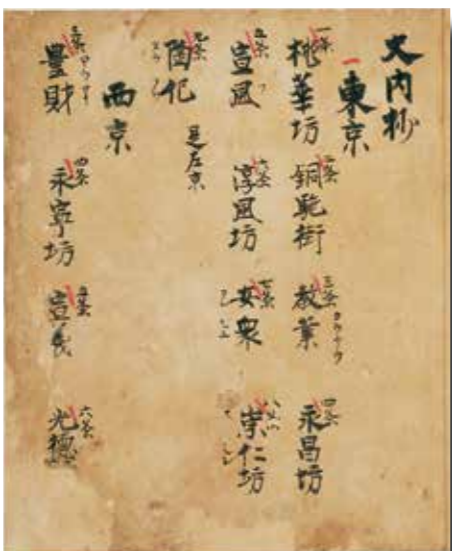 文内抄
一東京
一条桃華坊 二条銅駝街 三条教業 四条永昌坊
五条宣風 六条淳風坊 七条安衆 八条崇仁坊
九条陶化 是左京
西京
三条豐財 四条永寧坊 五条宣義 六条光德